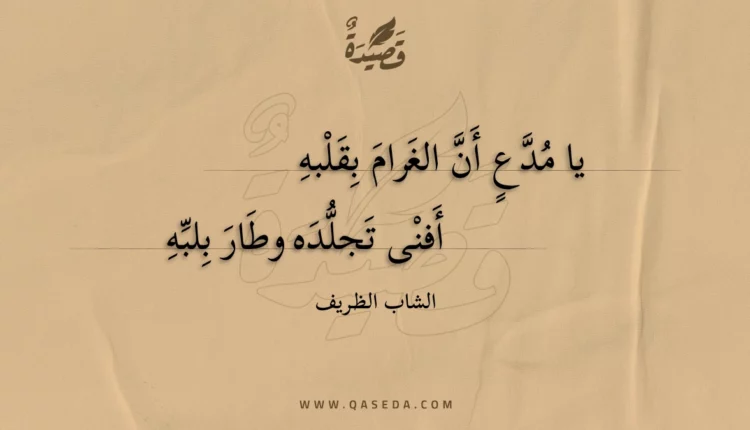 قَصِيدَةٌ
يا مُدَّعٍ أَنَّ الغَرامَ بِقَلْبهِ
أَفنْى تَجلُّدَه وطَارَ بِلبِّهِ
الشاب الظريف
WWW.QASEDA.COM